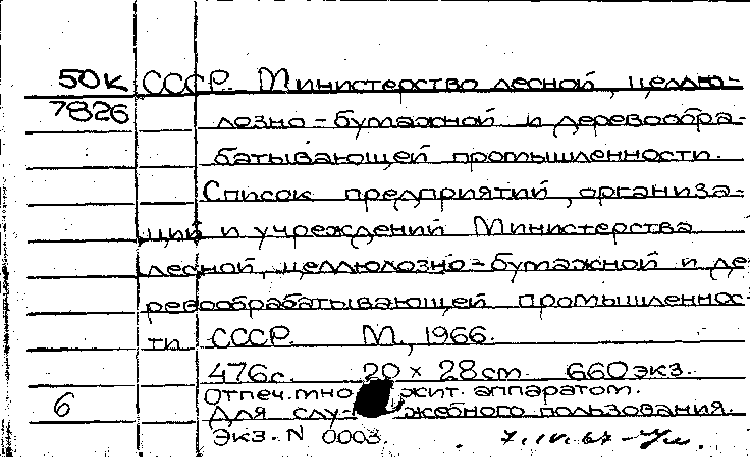 50к СССР. Министерство лесной, целлю-
7826 лозно-бумажной и деревообра-
батывающей промышленности.
Список предприятий, организа-
ций и учреждений Министерства
лесной, целлюлозно-бумажной и де
ревообрабатывающей промышленнос
ти СССР. М., 1966.
476с. 20 × 28 cm. 660 экз.
Отпеч. мно жит. аппаратом.
6 Для слу- жебного пользования.
Экз. N 0003. 7.IV.67